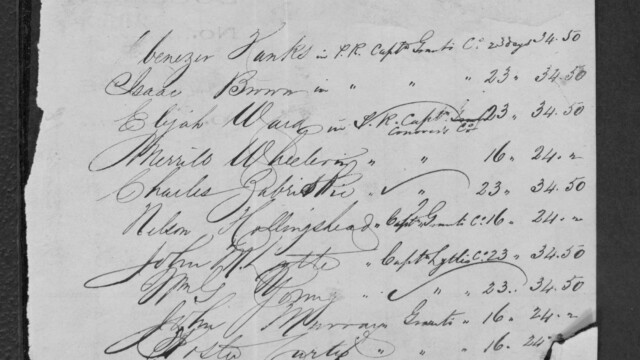 Ebenezer Hanks in S.R. Capt. Grants Co. 23 days 34.50
Isaac Brown in " " " 23 " 34.50
Elijah Ward in S.R. Capt. 23 " 34.50
Co
Merrilo Wheelering " " 16 " 24. "
Charles " " 23 " 34.50
Nelson Hollingshead " Capt. Grants Co. 16 " 24. "
John Lyttle " Capt. Lyttles Co. 23 " 34.50
Wm G Young " " 23 " 34.50
John Murray Grants " 16 " 24. "
Foster Curtis " " 16 " 24